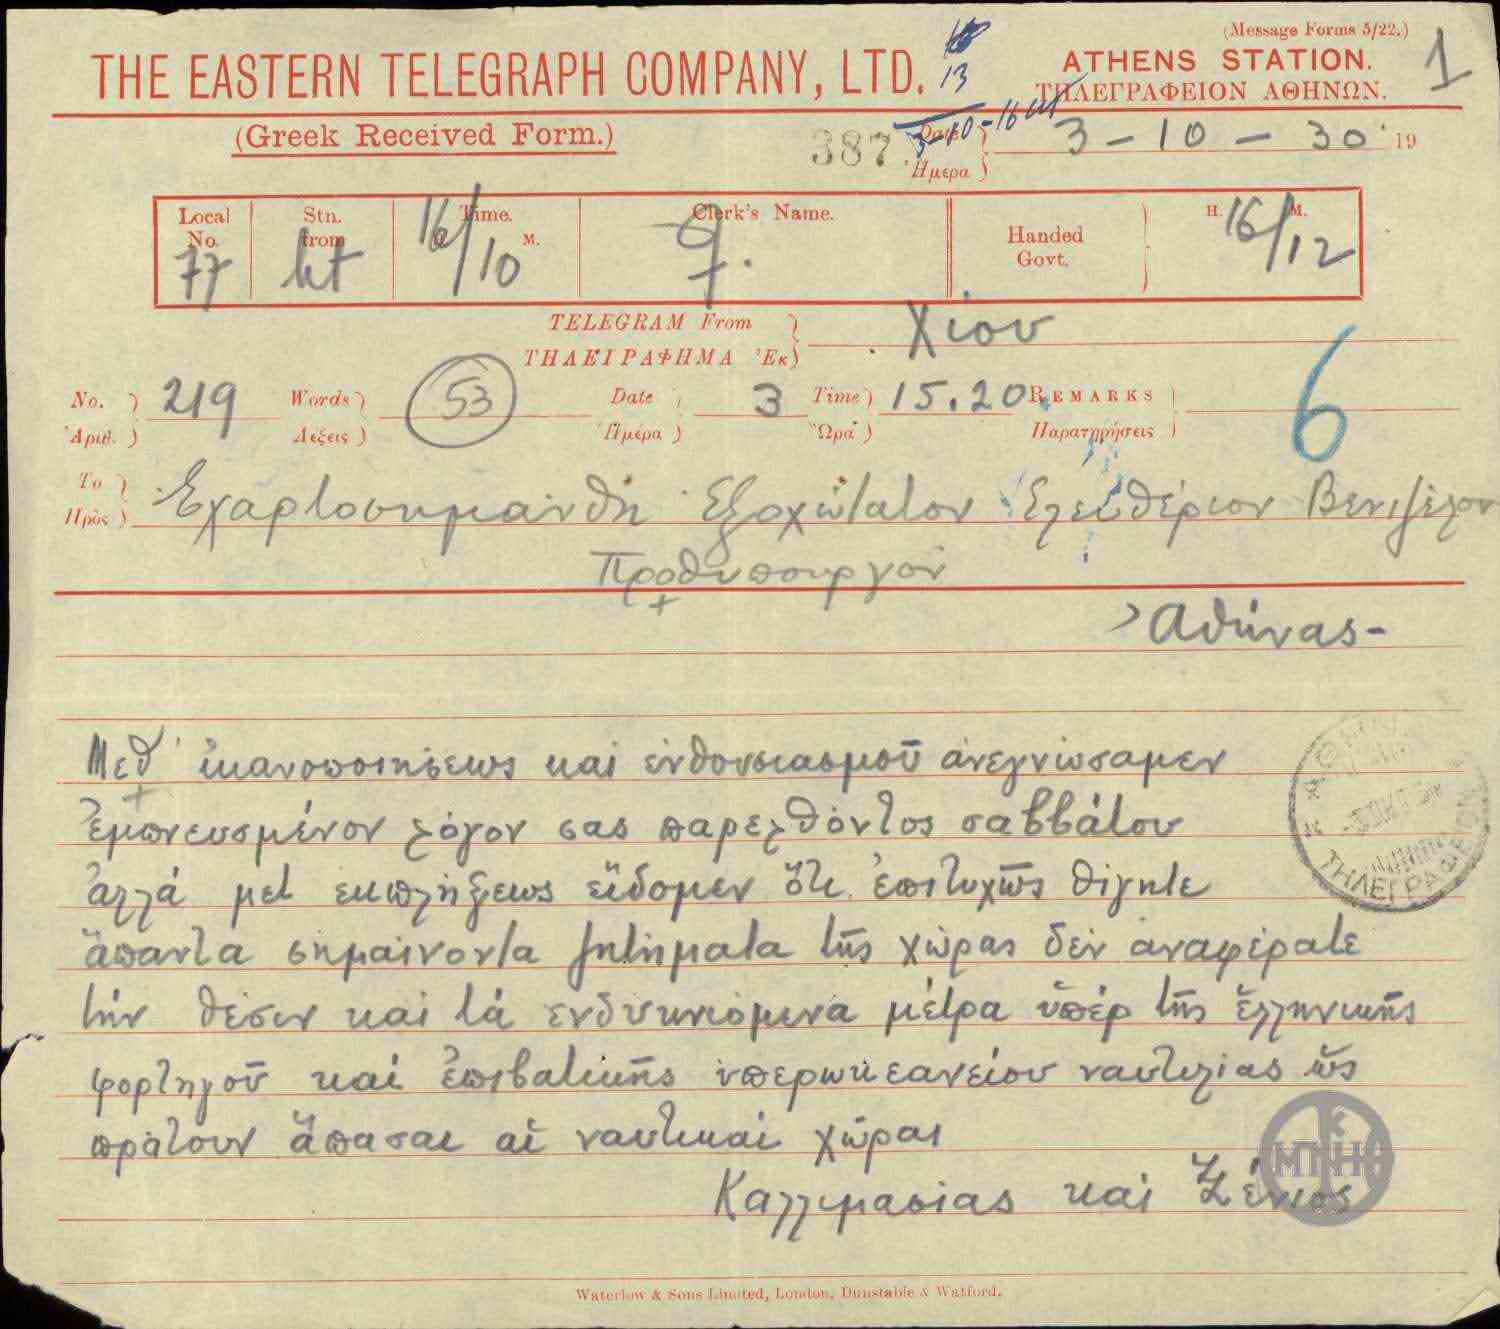 (Message Forms 5/22.)
THE EASTERN TELEGRAPH COMPANY, LTD.
13
ATHENS STATION.
ΤΗΛΕΓΡΑΦΕΙΟΝ ΑΘΗΝΩΝ.
1
(Greek Received Form.)
387
Date
Ἡμερα
3-10-30 19
Local No. 77
Stn. from
Time. H. M. 16/10
Clerk's Name.
Handed Govt.
H. M. 16/12
TELEGRAM From
ΤΗΛΕΓΡΑΦΗΜΑ Ἐκ
Χίου
No. 219 Words 53 Date 3 Time 15.20 REMARKS 6
Ἀριθ. Λεξεις Ἡμέρα Ὥρα Παρατηρήσεις
To
Πρὸς
Εχαρτοσημάνθη Εξοχώτατον Ελευθέριον Βενιζέλον
Προθυπουργόν
Αθήνας-
Μεθ' ἱκανοποιήσεως και ενθουσιασμοῦ ἀνεγνώσαμεν
Ἐμπνευσμένον λόγον σας παρελθόντος σαββάτου
ἀλλά μετ εκπλήξεως εἴδομεν ὅτι ἐπιτυχῶς θίγητε
ἅπαντα σημαίνοντα ζητήματα τῆς χώρας δέν αναφέρατε
τήν θέσιν και τά ενδυκνιόμενα μέτρα ὑπέρ τῆς ἑλληνικῆς
φορτηγοῦ καί ἐπιβατικῆς υπερωκεανείου ναυτιλίας ὡς
πράτουν ἅπασαι αἱ ναυτικαί χῶραι
Καλλιμασίας καί Ξένιος
ΤΗΛΕΓΡΑΦΕΙΟΝ
Waterlow & Sons Limited, London, Dunstable & Watford.